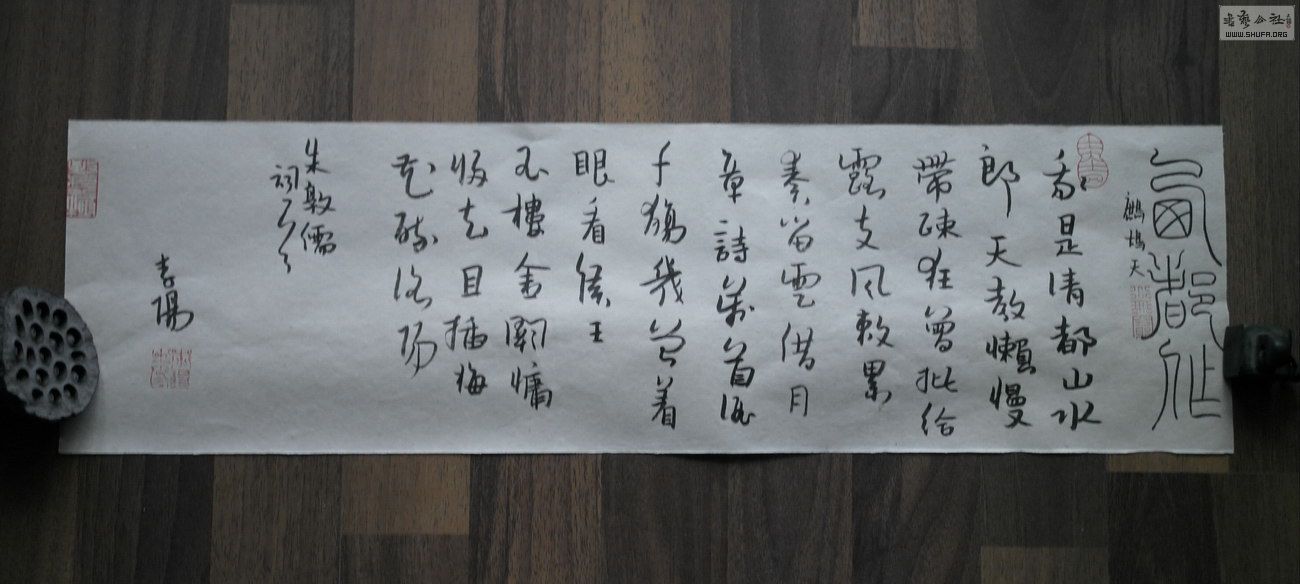 西都作
鷓鴣天
我是清都山水
郎天教懶慢
帶疎狂曾批給
露支風敕累
奏留雲借月
章詩萬首酒
千觴幾曾着
眼看侯王
玉樓金闕慵
歸去且插梅
花醉洛陽
朱敦儒
詞
書藝公社
WWW.SHUFA.ORG